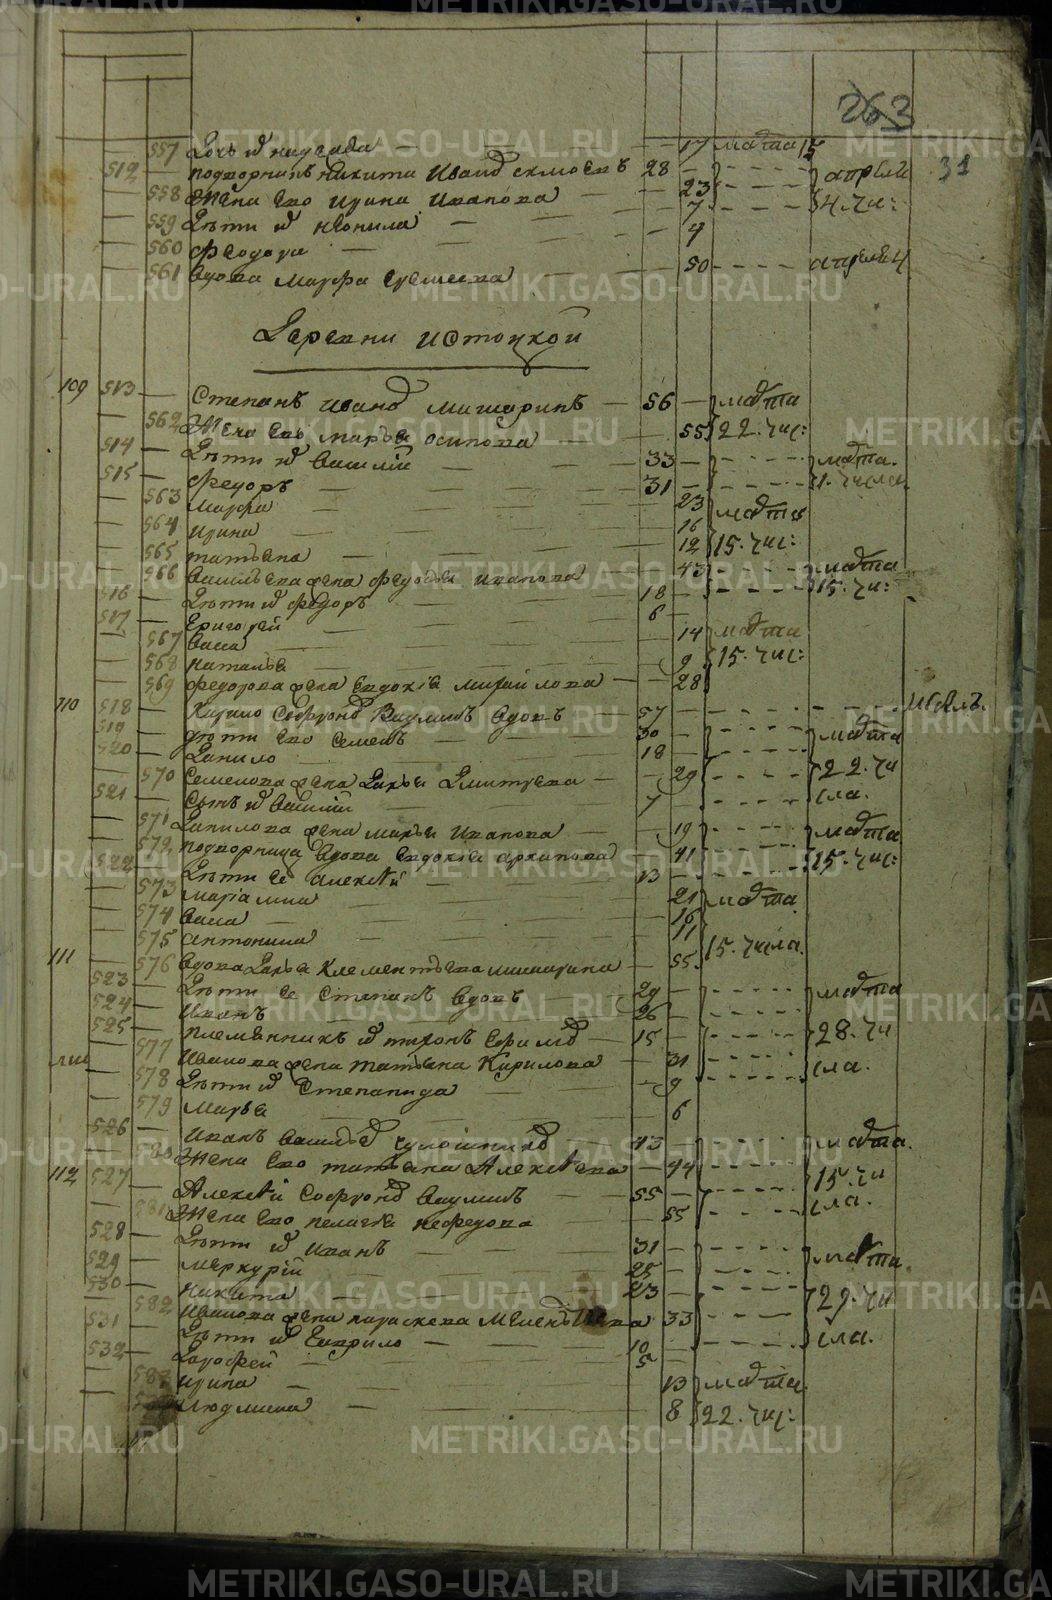 263
31
557 Дочь их 17 марта 15
512 подворникъ никита Иванов 28 апреля
558 Жена Ево ирина Иванова 23 4. чис:
559 Дѣти их неонила 7
560 Феодора 4
561 вдова марфа 50 апреля 4
Деревни истоцкой
109 513 Степанъ иванов мишаринъ 56 марта
562 Жена Ево марья осипова 55 22. чис:
514 Дѣти их василий 33 марта.
515 Федоръ 31 1. числа.
563 Марфа 23 марта
564 ирина 16 15. чис:
565 татьяна 12
566 васильева жена Иванова 43 марта
516 Дѣти их федоръ 18 15. чи:
517 Григорей 6
567 васса 14 марта
568 наталья 9 15. чис:
569 федорова жена Евдокия михайлова 28
110 518 Кирило Софронов Ваулинъ вдовъ 57
519 дѣти Ево Семенъ 30 марта
520 Данило 18 22. чи
570 Семенова жена Дарья Дмитрева 29
521 сынъ их василий 7 сла.
571 Данилова жена марья Иванова 19 марта
572 подворница вдова Евдокия архипова 41 15. чис:
522 Дѣти Ее алексѣй 13
573 маріамна 21 марта
574 васса 16
575 антонина 11 15. числа.
111 576 вдова Дарья Клементьева мишарина 55.
523 Дѣти Ее Степанъ вдовъ 29 марта
524 Иванъ 26
525 племянникъ их Ефимов 15 28. чи
577 Иванова жена татьяна Кирилова 31 сла.
578 Дѣти их Степанида 9
579 марья 6
526 Иванъ васильев 43 марта.
580 Жена Ево татьяна Алексѣева 44 15. чи
112 527 Алексѣй Софронов Ваулинъ 55 сла.
581 Жена Ево пелагея нефедова 55
528 Дѣти их Иванъ 31 марта.
529 меркурій 25
530 никита 23 29. чи
582 Иванова жена параскева 33
531 Дѣти их Гаврило 10 сла.
532 Дорофей 5
583 ирина 13 марта
людмила 8 22. чис:
METRIKI.GASO-URAL.RU